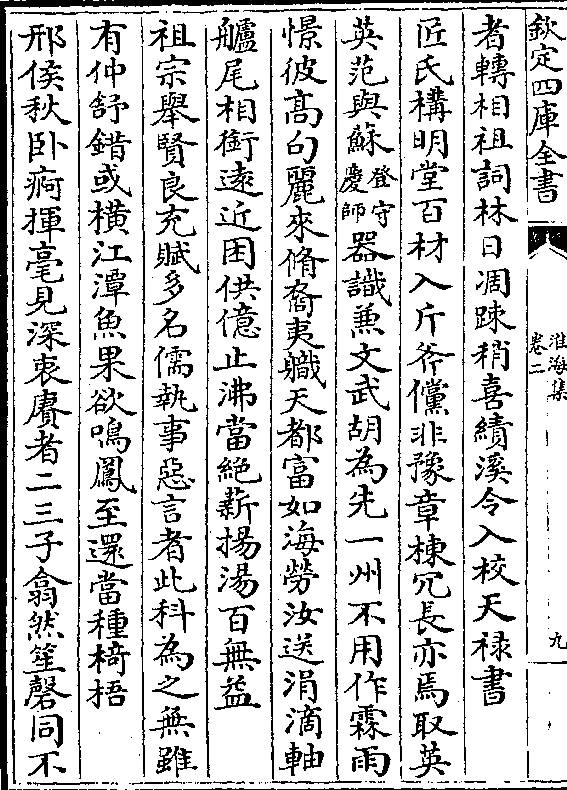 欽定四庫全書
淮海集
卷二
九
者轉相祖詞林日凋踈稍喜績溪令入校天禄書
匠氏構明堂百材入斤斧儻非豫章棟冗長亦焉取英
英范與蘇登守慶師器識兼文武胡為先一州不用作霖雨
憬彼高句麗來脩裔夷職天都富如海勞汝送涓滴軸
艫尾相銜逺近困供億止沸當絶薪揚湯百無益
祖宗舉賢良充賦多名儒執事惡言者此科為之無雖
有仲舒錯或横江潭魚果欲鳴鳳至還當種椅梧
邢侯秋卧痾揮毫見深衷賡者二三子翕然笙磬同不